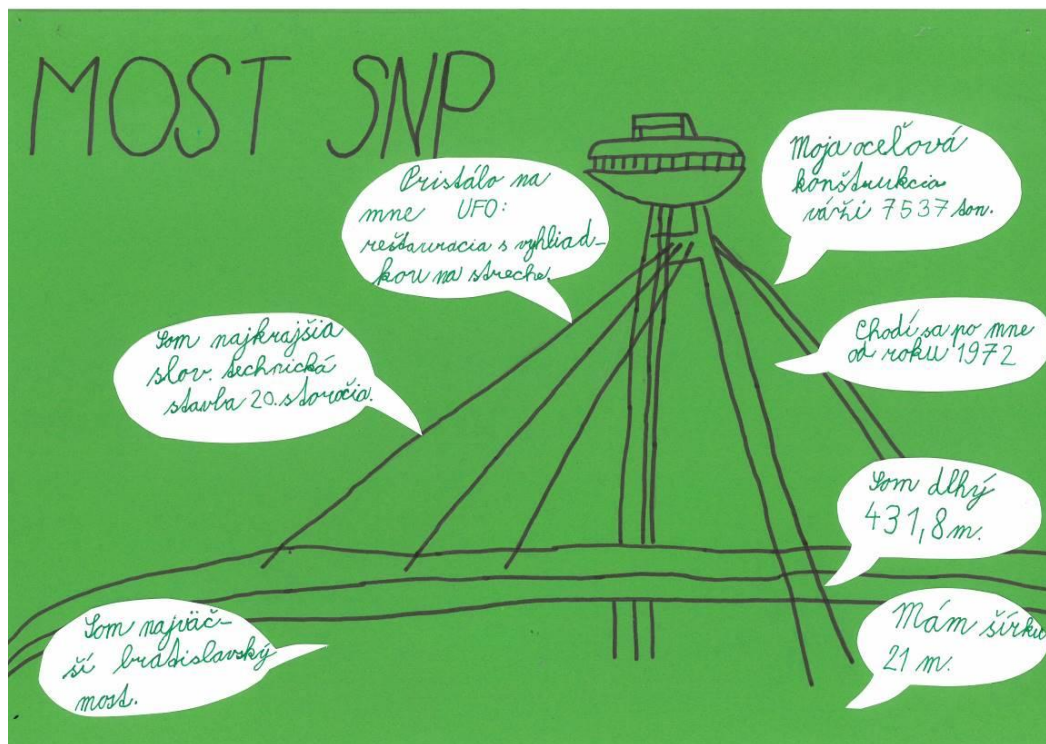 MOST SNP
Pristálo na
mne UFO:
reštauracia s vyhliad-
kou na streche.
Moja oceľová
konštrukcia
váži 7537 ton.
Som najkrajšia
slov. technická
stavba 20. storočia.
Chodí sa po mne
od roku 1972
Som dlhý
431,8 m.
Som najväč-
ší bratislavský
most.
Mám šírku
21 m.